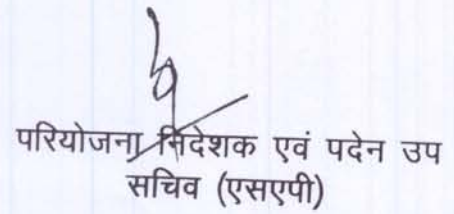 परियोजना निदेशक एवं पदेन उप
सचिव (एसएपी)